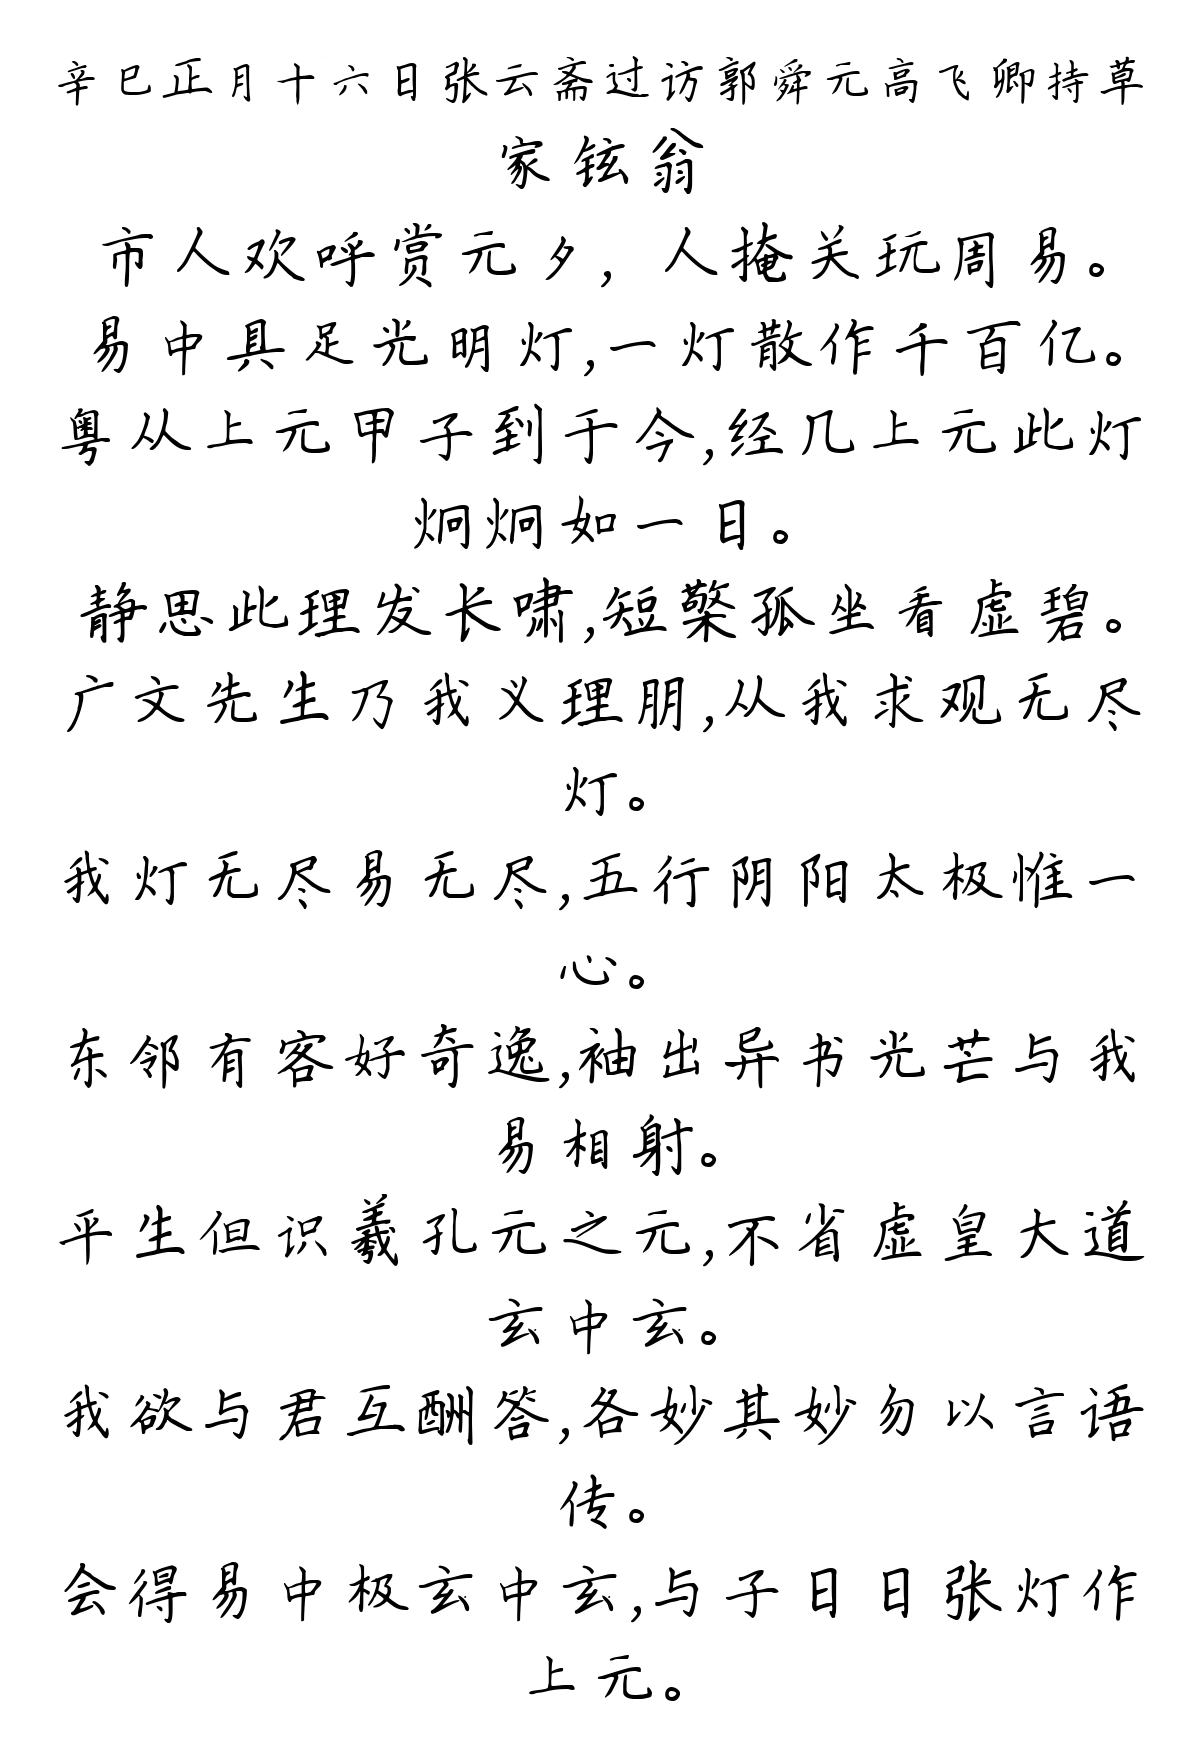 辛巳正月十六日张云斋过访郭舜元高飞卿持草
家铉翁
市人欢呼赏元夕，人掩关玩周易。
易中具足光明灯,一灯散作千百亿。
粤从上元甲子到于今,经几上元此灯
炯炯如一日。
静思此理发长啸,短檠孤坐看虚碧。
广文先生乃我义理朋,从我求观无尽
灯。
我灯无尽易无尽,五行阴阳太极惟一
心。
东邻有客好奇逸,袖出异书光芒与我
易相射。
平生但识羲孔元之元,不省虚皇大道
玄中玄。
我欲与君互酬答,各妙其妙勿以言语
传。
会得易中极玄中玄,与子日日张灯作
上元。